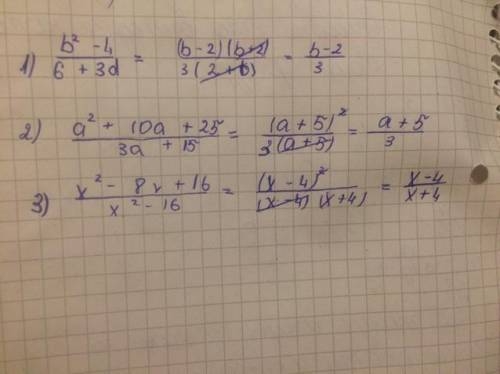 1) (b² - 4)/(6 + 3d) = ((b-2)(b+2))/(3(2+b)) = (b-2)/3
2) (a² + 10a + 25)/(3a + 15) = (a+5)²/(3(a+5)) = (a+5)/3
3) (x² - 8x + 16)/(x² - 16) = (x-4)²/((x-4)(x+4)) = (x-4)/(x+4)